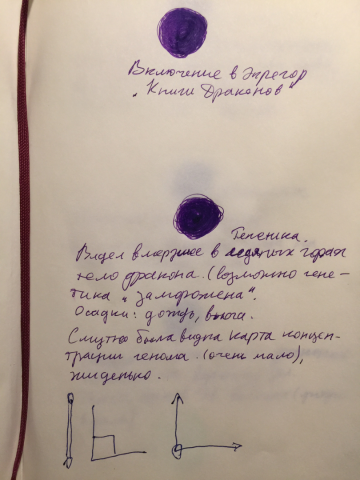 Включение в Эгрегор
"Книги Драконов"
Генетика.
Видел вмёрзшее в ледяных горах
тело дракона. (возможно гене-
тика "заморожена".
Осадки: дождь, вьюга.
Смутно была видна карта концен-
трации генома. (очень мало),
жиденько.